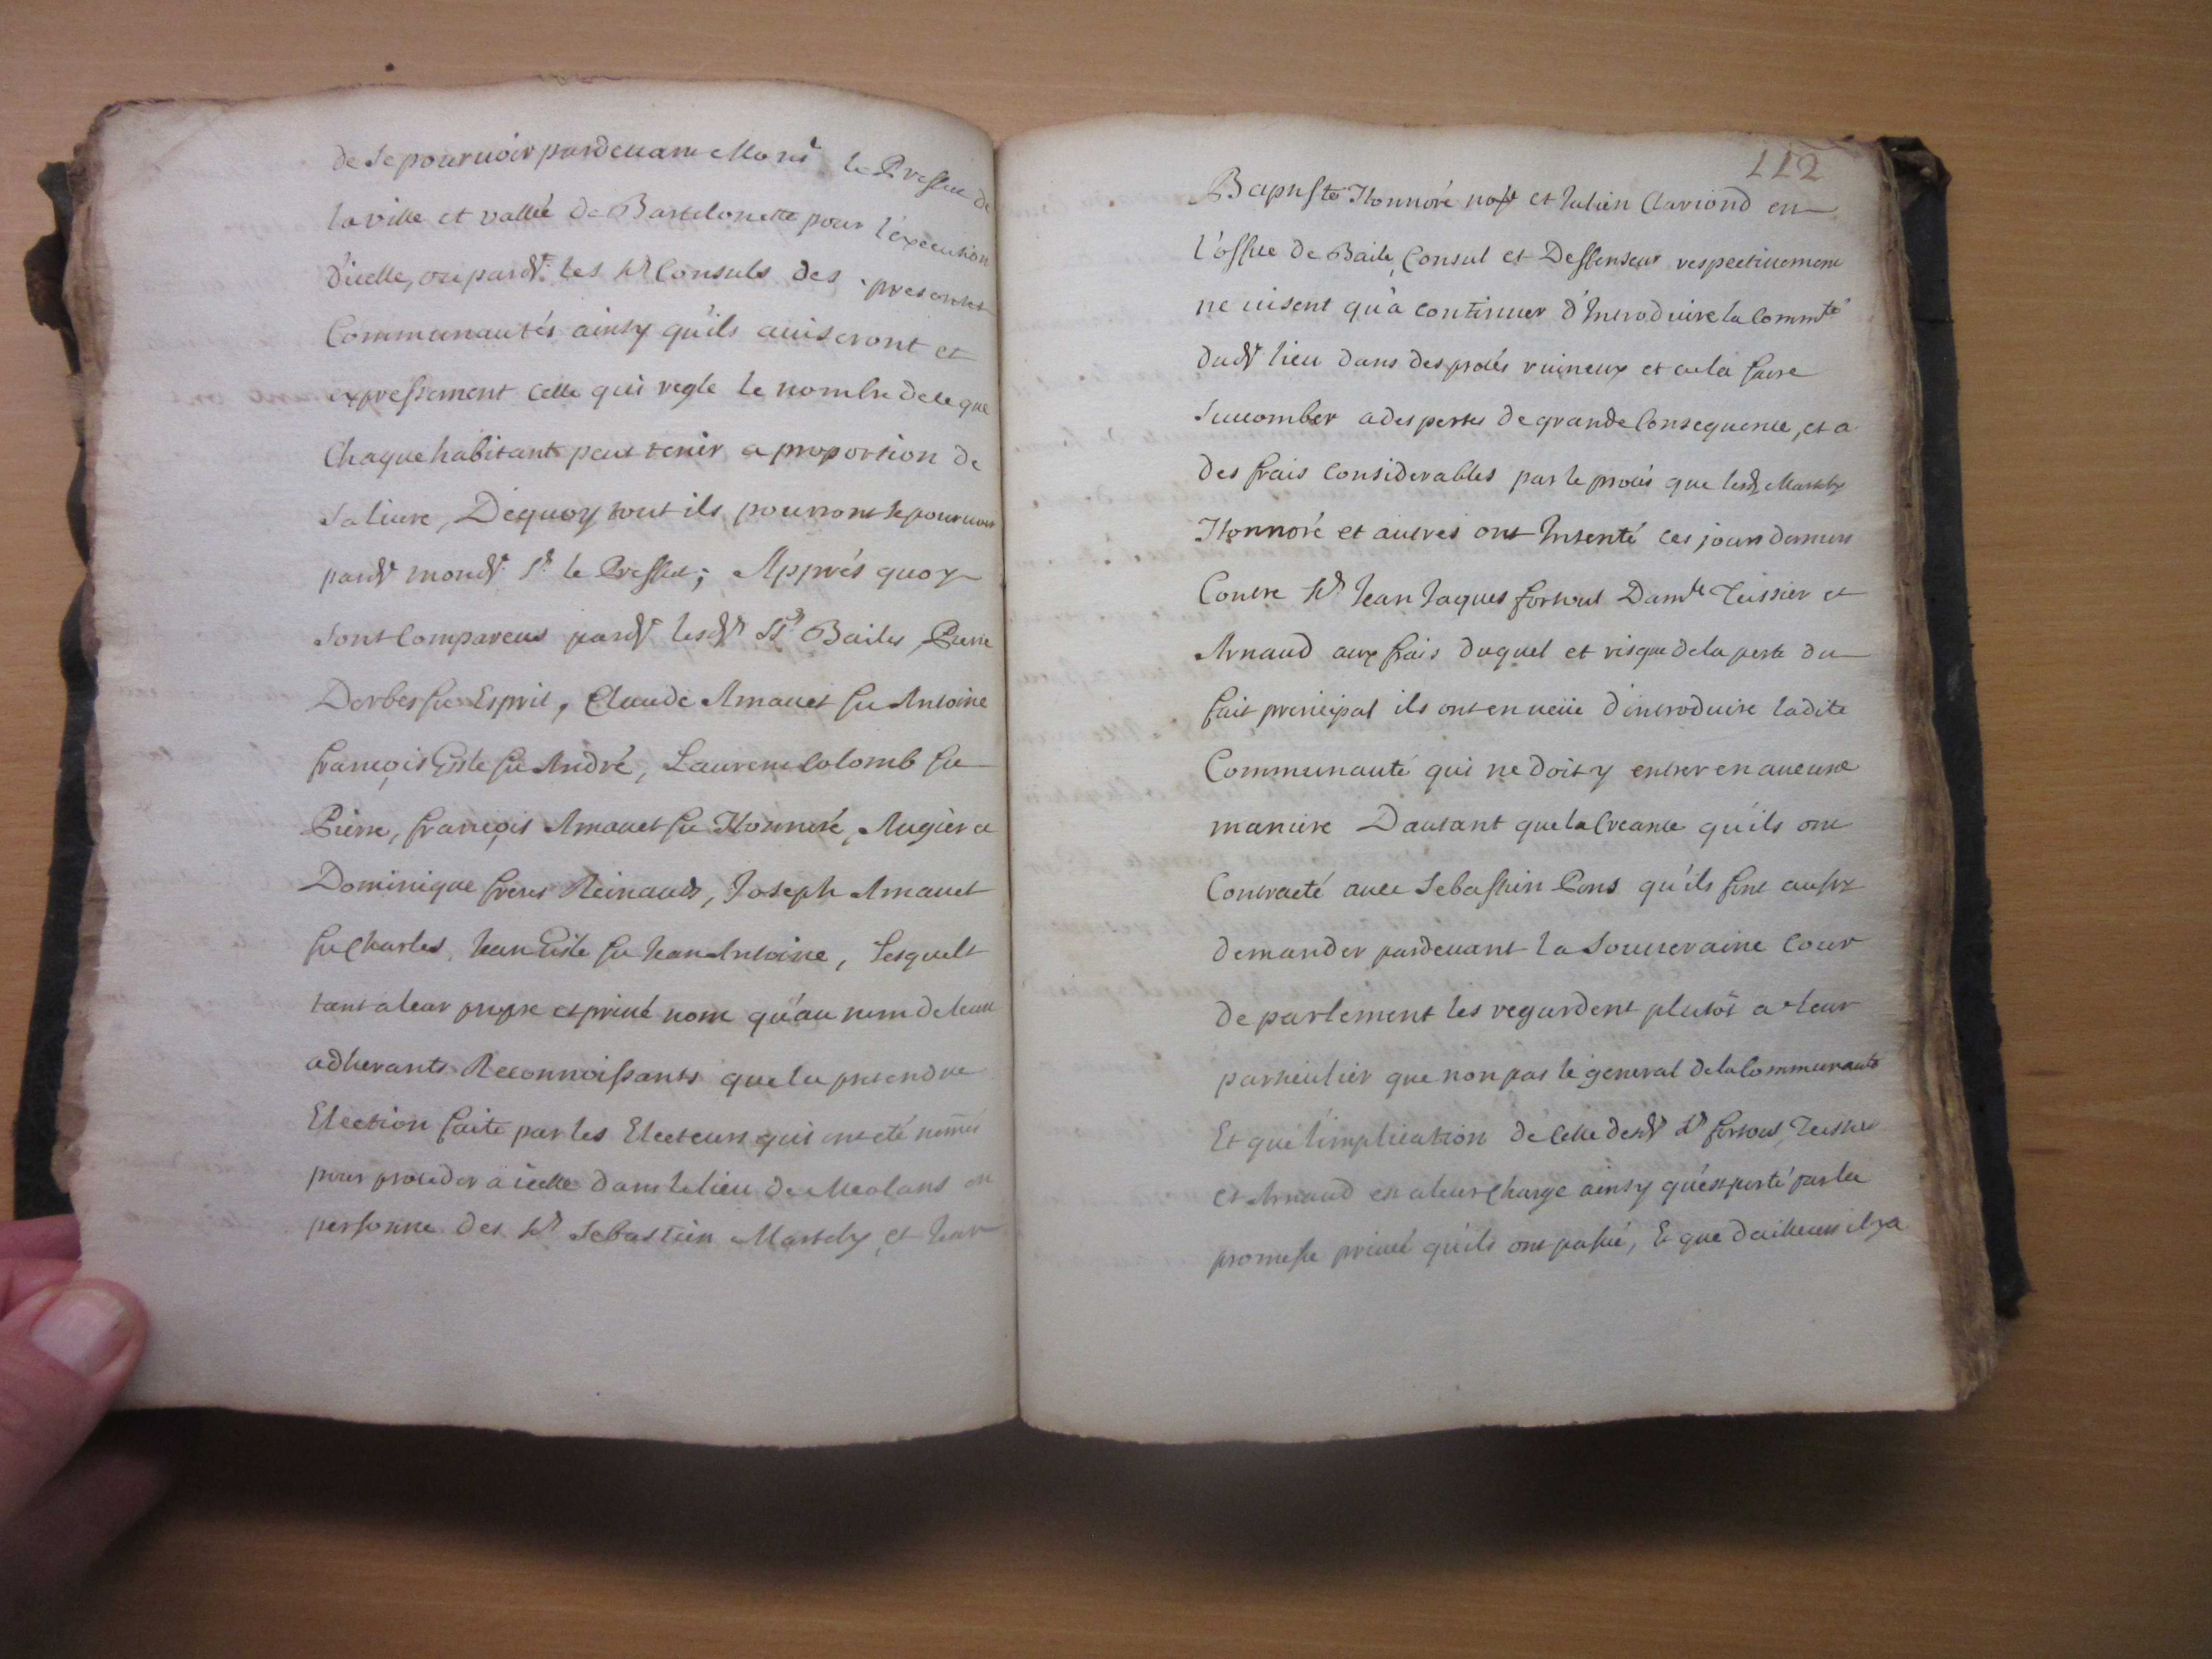 de se pourvoir pardevant Monsr le Preffect de
la ville et vallée de Barcelonette pour l'execution
d'icelle, ou pardt les srs Consuls des presentes
Communautés ainsy qu'ils auiseront et
expressement celle qui regle le nombre de ce que
Chaque habitant peut tenir a proportion de
sa liure, De quoy tout ils pourront se pourvoir
pardt mondt sr le Preffect; Apprés quoy
sont Compareus pardt lesdts Srs Bailes Pierre
Derbes fu Esprit, Claude Arnauet fu Antoine
françois Gile fu André, Laurent Colomb fu
Pierre, françois Arnauet fu Honnoré, Augier et
Dominique freres Reinauds, Joseph Arnauet
fu Charles, Jean Gile fu Jean Antoine, Lesquels
tant a leur propre et priué nom qu'au nom de leurs
adherants Reconnoissants que la pretendue
Election faite par les Electeurs qui ont eté nommés
pour proceder a icelle dans le lieu de Meolans en
personne des srs Sebastien Martely et Jean
112
Baptiste Honnoré nore et Julien Clariond en
l'office de Baile, Consul et Deffenseur respectiuement
ne uisent qu'a continuer d'Introduire la Commté
dudt lieu dans des procés ruineux et a la faire
Succomber a des pertes de grande Consequence, et a
des frais Considerables par le procés que lesds Martely
Honnoré et autres ont Intenté ces jours derniers
Contre srs Jean Jaques fortoul Damle Teissier et
Arnaud aux frais duquel et risque de la perte du
fait principal ils ont en ueüe d'introduire ladite
Communauté qui ne doit y entrer en aucune
maniere D'autant que la Creance qu'ils ont
Contracté auec Sebastien Pons qu'ils font aussy
demander pardeuant la Souueraine Cour
de parlement les regardent plutôt a leur
particulier que non pas le general de la Communauté
Et que l'implication de Celle desdt srs fortoul, Teissier
et Arnaud est a leur charge ainsy qu'est porté par la
promesse priueé qu'ils ont passé, Et que d'ailleurs il y a